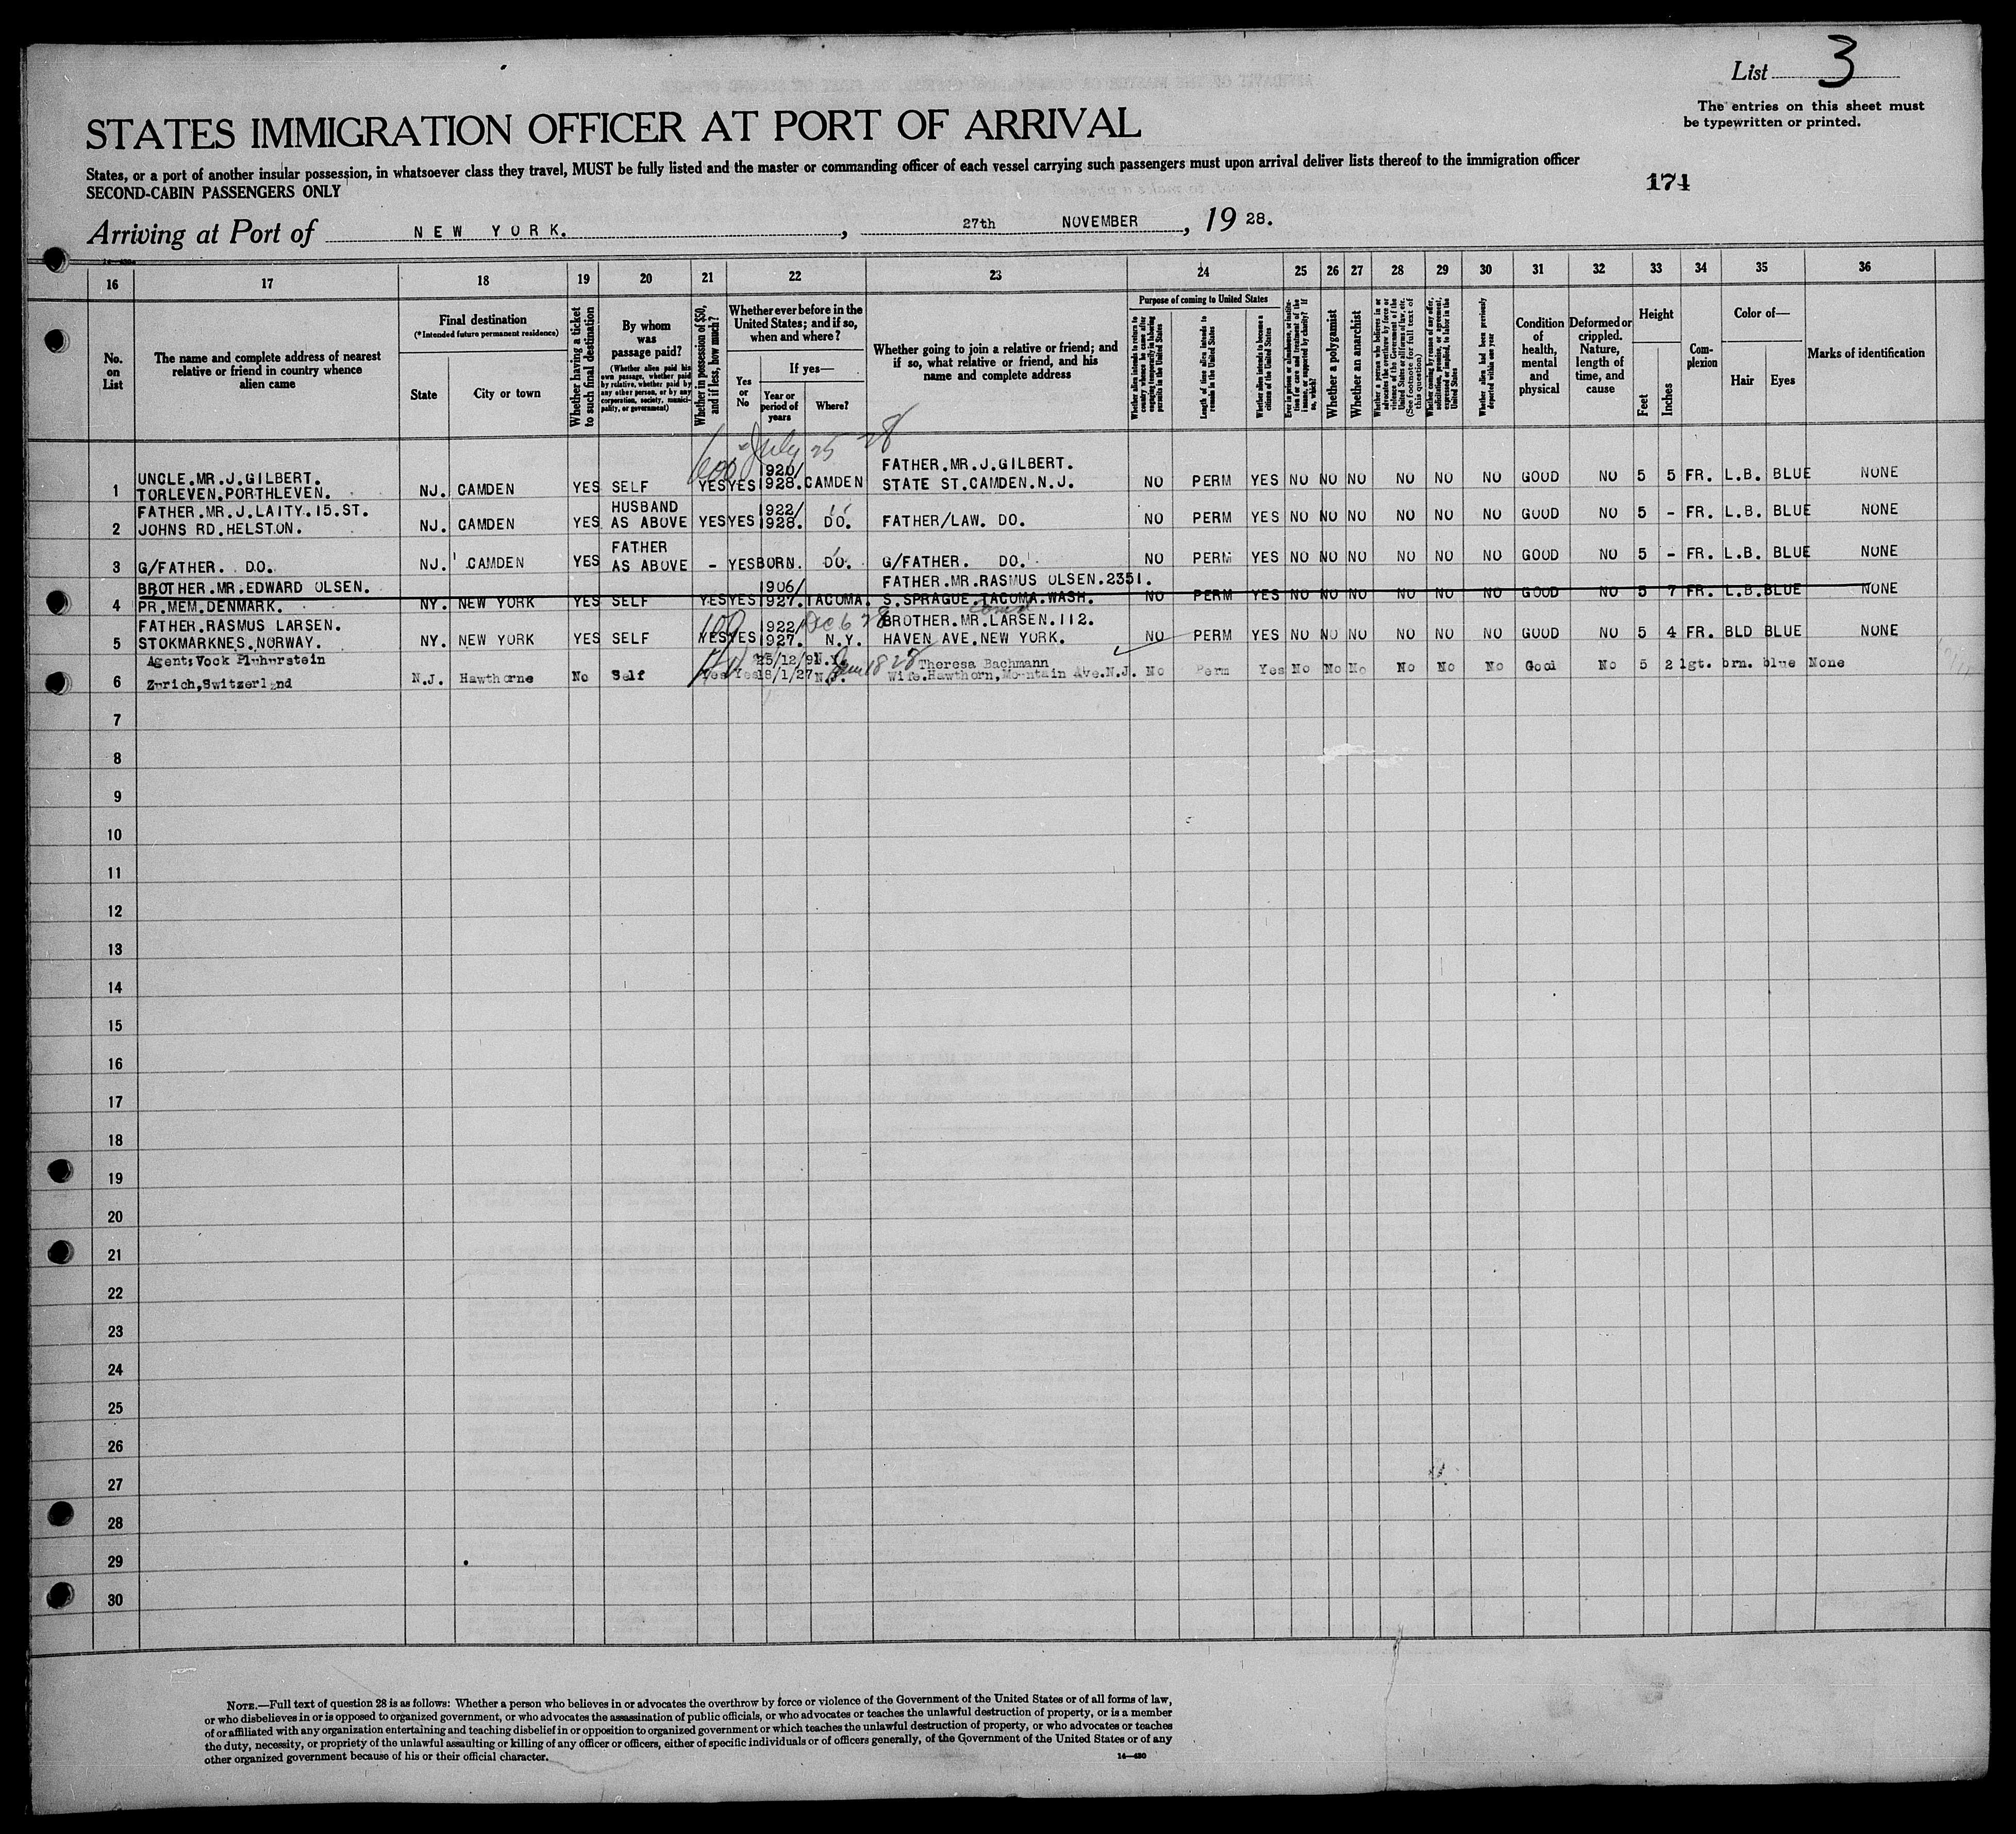 List 3
The entries on this sheet must
be typewritten or printed.
STATES IMMIGRATION OFFICER AT PORT OF ARRIVAL
States, or a port of another insular possession, in whatsoever class they travel, MUST be fully listed and the master or commanding officer of each vessel carrying such passengers must upon arrival deliver lists thereof to the immigration officer
SECOND-CABIN PASSENGERS ONLY
174
Arriving at Port of NEW YORK. , 27th NOVEMBER , 19 28.
16 17 18 19 20 21 22 23 24 25 26 27 28 29 30 31 32 33 34 35 36
No. on List
The name and complete address of nearest
relative or friend in country whence
alien came
Final destination
(*Intended future permanent residence)
State
City or town
Whether having a ticket
to such final destination
By whom
was
passage paid?
(Whether alien paid his
own passage, whether paid
by relative, whether paid by
any other person, or by any
corporation, society, munici-
pality, or government)
Whether in possession of $50,
and if less, how much?
Whether ever before in the
United States; and if so,
when and where?
Yes
or
No
If yes—
Year or
period of
years
Where?
Whether going to join a relative or friend; and
if so, what relative or friend, and his
name and complete address
Purpose of coming to United States
Whether alien intends to return to
country whence he came after
engaging temporarily in laboring
pursuits in the United States
Length of time alien intends to
remain in the United States
Whether alien intends to become a
citizen of the United States
Ever in prison or almshouse, or institu-
tion for care and treatment of the
insane, or supported by charity? If
so, which?
Whether a polygamist
Whether an anarchist
Whether a person who believes in or
advocates the overthrow by force or
violence of the Government of the
United States or all forms of law, etc.
(See footnote for full text of
this question)
Whether coming by reason of any offer,
solicitation, promise, or agreement,
expressed or implied, to labor in the
United States
Whether alien had been previously
deported within one year
Condition
of
health,
mental
and
physical
Deformed or
crippled.
Nature,
length of
time, and
cause
Height
Feet
Inches
Com-
plexion
Color of—
Hair
Eyes
Marks of identification
600 July 25 28
UNCLE.MR.J.GILBERT. 1920/ FATHER.MR.J.GILBERT.
1 TORLEVEN.PORTHLEVEN. NJ. CAMDEN YES SELF YES YES 1928. CAMDEN STATE ST.CAMDEN.N.J. NO PERM YES NO NO NO NO NO NO GOOD NO 5 5 FR. L.B. BLUE NONE
FATHER.MR.J.LAITY.15.ST. HUSBAND 1922/
2 JOHNS RD.HELSTON. NJ. CAMDEN YES AS ABOVE YES YES 1928. DO. FATHER/LAW. DO. NO PERM YES NO NO NO NO NO NO GOOD NO 5 - FR. L.B. BLUE NONE
FATHER
3 G/FATHER. DO. NJ. CAMDEN YES AS ABOVE - YES BORN. DO. G/FATHER. DO. NO PERM YES NO NO NO NO NO NO GOOD NO 5 - FR. L.B. BLUE NONE
BROTHER.MR.EDWARD OLSEN. 1906/ FATHER.MR.RASMUS OLSEN.2351.
4 PR.MEM.DENMARK. NY. NEW YORK YES SELF YES YES 1927. TACOMA. S.SPRAGUE.TACOMA.WASH. NO PERM YES NO NO NO NO NO NO GOOD NO 5 7 FR. L.B. BLUE NONE
FATHER.RASMUS LARSEN. 100 1922/ Dec 6 28 BROTHER.MR.LARSEN.112.
5 STOKMARKNES.NORWAY. NY. NEW YORK YES SELF YES YES 1927. N.Y. HAVEN AVE.NEW YORK. NO PERM YES NO NO NO NO NO NO GOOD NO 5 4 FR. BLD BLUE NONE
Agent:Vock 25/12/91 N.Y. 18 28 Theresa Bachmann
6 Zurich,Switzerland N.J. Hawthorne No Self Yes Yes 18/1/27 Wife.Hawthorn,Mountain Ave.N.J. No Perm Yes No No No No No No Good No 5 2 lgt. brn. blue None
7
8
9
10
11
12
13
14
15
16
17
18
19
20
21
22
23
24
25
26
27
28
29
30
NOTE.—Full text of question 28 is as follows: Whether a person who believes in or advocates the overthrow by force or violence of the Government of the United States or of all forms of law,
or who disbelieves in or is opposed to organized government, or who advocates the assassination of public officials, or who advocates or teaches the unlawful destruction of property, or is a member
of or affiliated with any organization entertaining and teaching disbelief in or opposition to organized government or which teaches the unlawful destruction of property, or who advocates or teaches
the duty, necessity, or propriety of the unlawful assaulting or killing of any officer or officers, either of specific individuals or of officers generally, of the Government of the United States or of any
other organized government because of his or their official character.
14—430